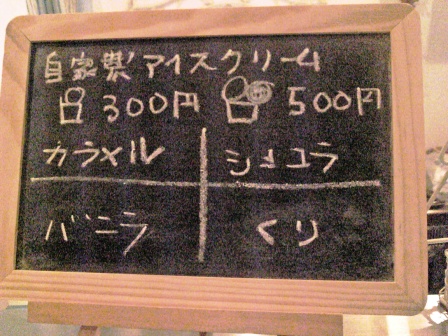 自家製アイスクリーム
300円 500円
カラメル ショコラ
バニラ くり